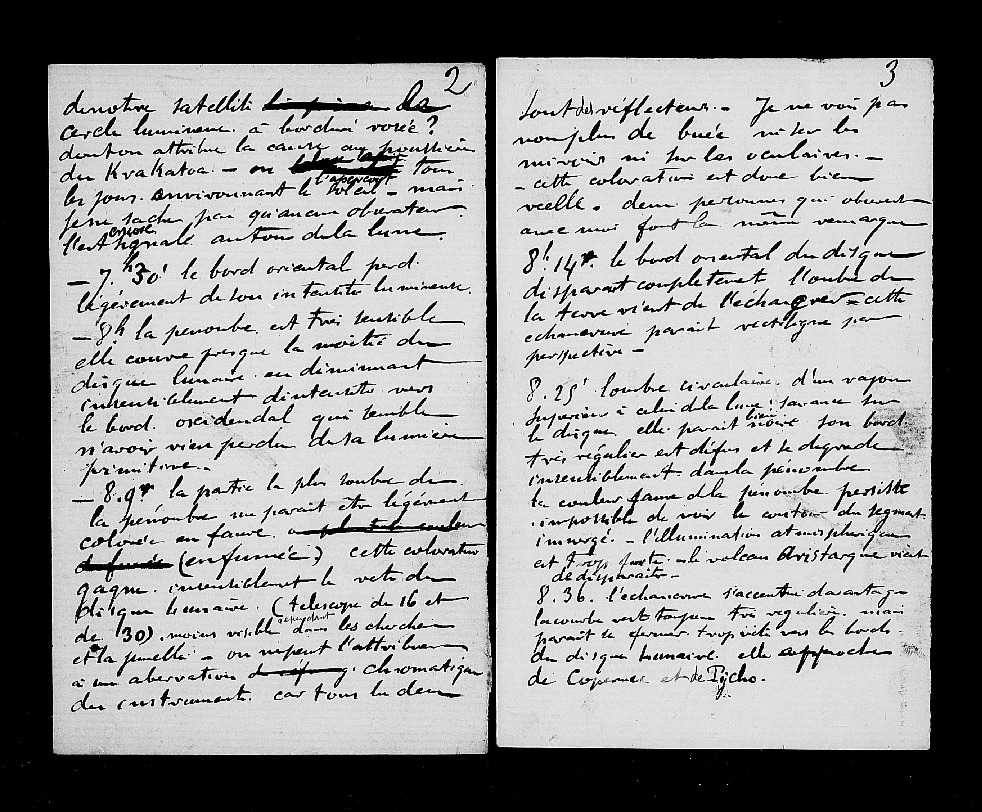 2
de notre satellite la
cercle lumineux à bordure rosée?
dont on attribue la cause aux poussières
du Krakatoa. - on l'aperçoit tous
les jours environnant le soleil - mais
je ne sache pas qu'aucun observateur
l'ait encore signalé autour de la lune.
- 7h 30' le bord oriental perd
légèrement de son intensité lumineuse.
- 8h la penombre est très sensible
elle couvre presque la moitié du
disque lunaire en diminuant
insensiblement d'intensité vers
le bord occidendal qui semble
n'avoir rien perdu de sa lumière
primitive.
- 8.9m la partie la plus sombre de
la pénombre me parait être légèrement
colorée en fauve
(enfumée) cette coloration
gagne insensiblement le reste du
disque lunaire. (télescope de 16 et
de 130). moins visible cependant dans les chercheurs
et à la jumelle - on ne peut l'attribuer
à une abervation chromatique
des instruments car tous les deux
3
sont des réflecteurs. - Je ne vois pas
non plus de buée ni sur les
miroirs ni sur les oculaires. -
- cette coloration est donc bien
réelle. deux personnes qui observent
avec moi font la même remarque
8h. 14m. le bord oriental du disque
disparait completement l'ombre de
la terre vient de l'échancrer - cette
echancrure parait rectiligne par
perspective -
8.25' l'ombre circulaire d'un rayon
superieur à celui de la lune s'avance sur
le disque elle parait bien noire son bord
très régulier est difus et se dégrade
insensiblement dans la pénombre
la couleur fauve de la pénombre persiste
impossible de voir le contour du segment
immergé. - l'illumination atmospherique
est trop forte - le volcan Aristarque vient
de disparaitre -
8.36. l'échancrure s'accentue davantage
la courbe reste toujours très régulière mais
parait se fermer trop vite vers les bords
du disque lunaire. elle approche
de Copernic et de Tycho.